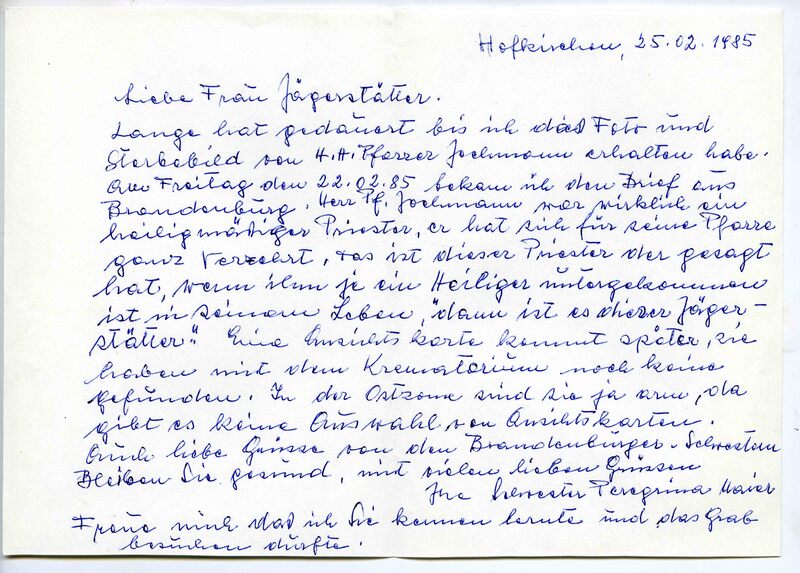 Hofkirchen, 25.02.1985
Liebe Frau Jägerstätter.
Lange hat gedauert bis ich das Foto und
Sterbebild von H.H. Pfarrer Jochmann erhalten habe.
Am Freitag den 22.02.85 bekam ich den Brief aus
Brandenburg. Herr Pf. Jochmann war wirklich ein
heiligmäßiger Priester, er hat sich für seine Pfarre
ganz verzehrt, das ist dieser Priester der gesagt
hat, wenn ihm je ein Heiliger untergekommen
ist in seinem Leben, "dann ist es dieser Jäger-
stätter." Eine Ansichtskarte kommt später, sie
haben mit dem Krematorium noch keine
gefunden. In der Ostzone sind sie ja arm, da
gibt es keine Auswahl von Ansichtskarten.
Auch liebe Grüsse von den Brandenburger-Schwestern
Bleiben Sie gesund, mit vielen lieben Grüssen
Ihre Schwester Peregrina Maier
Freue mich das ich Sie kennen lernte und das Grab
besuchen durfte.